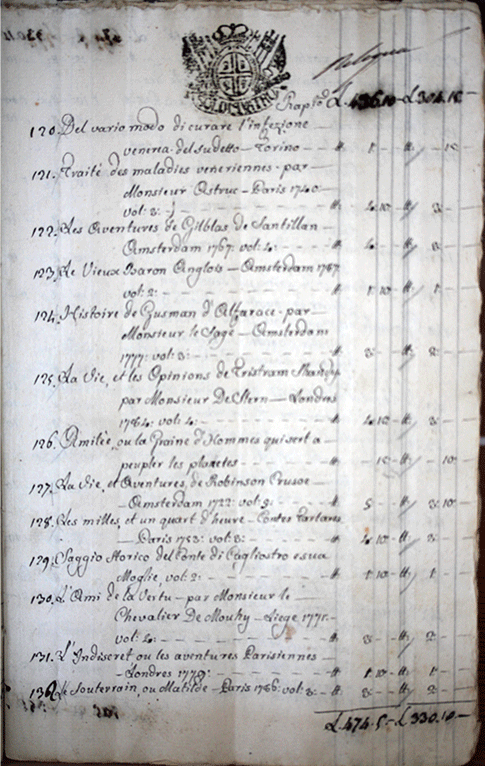 Riportº £.436.10 - £.304.10 -
120. Del vario modo di curare l'infezione
venerea del sudetto - Torino - - # 1 - #
121. Traité des maladies veneriennes - par
Monsieur Astruc - Paris 1740
vol: 3: - - - # 4.10 - # 3 -
122. Les Aventures de Gilblas de Santillan
Amsterdam 1767: vol: 4: - - # 4 - # 3 -
123. Le Vieux Baron Anglois - Amsterdam 1787
vol: 2: - - - # 1.10 - # 1 -
124. Histoire de Gusman d'Alfarace - par
Monsieur le Sage - Amsterdam
1777: vol: 3: - - - # 3 - # 2 -
125. La Vie, et les Opinions de Tristram Shandy
par Monsieur De Stern - Londres
1784: vol: 4: - - - # 4.10 - # 3 -
126. Amilèe, ou la Graine d'Hommes qui sert a
peupler les planetes - - - # 10 - # 10 -
127. La Vie, et Aventures, de Robinson Crusoe
- Amsterdam 1722: vol: - - # 5 - # 3.10 -
128. Les milles, et un quart d'heure - Contes Tartares
- Paris 1753: vol: 3: - - # 4.10 - # 3 -
129. Saggio storico del Conte di Cagliostro e sua
Moglie, vol: 2: - - - # 1.10 - # 1 -
130. L'Ami de la Vertu - par Monsieur le
Chevalier De Mouhy - Liege 1771.
vol: 4: - - - # 3 - # 2 -
131. L'Indiscret ou les aventures Parisiennes -
- Londres 1779: - - - # 1.10 - # 1 -
132. Le Souterrain, ou Matilde - Paris 1786: vol: 3: - # 3 - # 2 -
£.474.5 - £.330.10 -